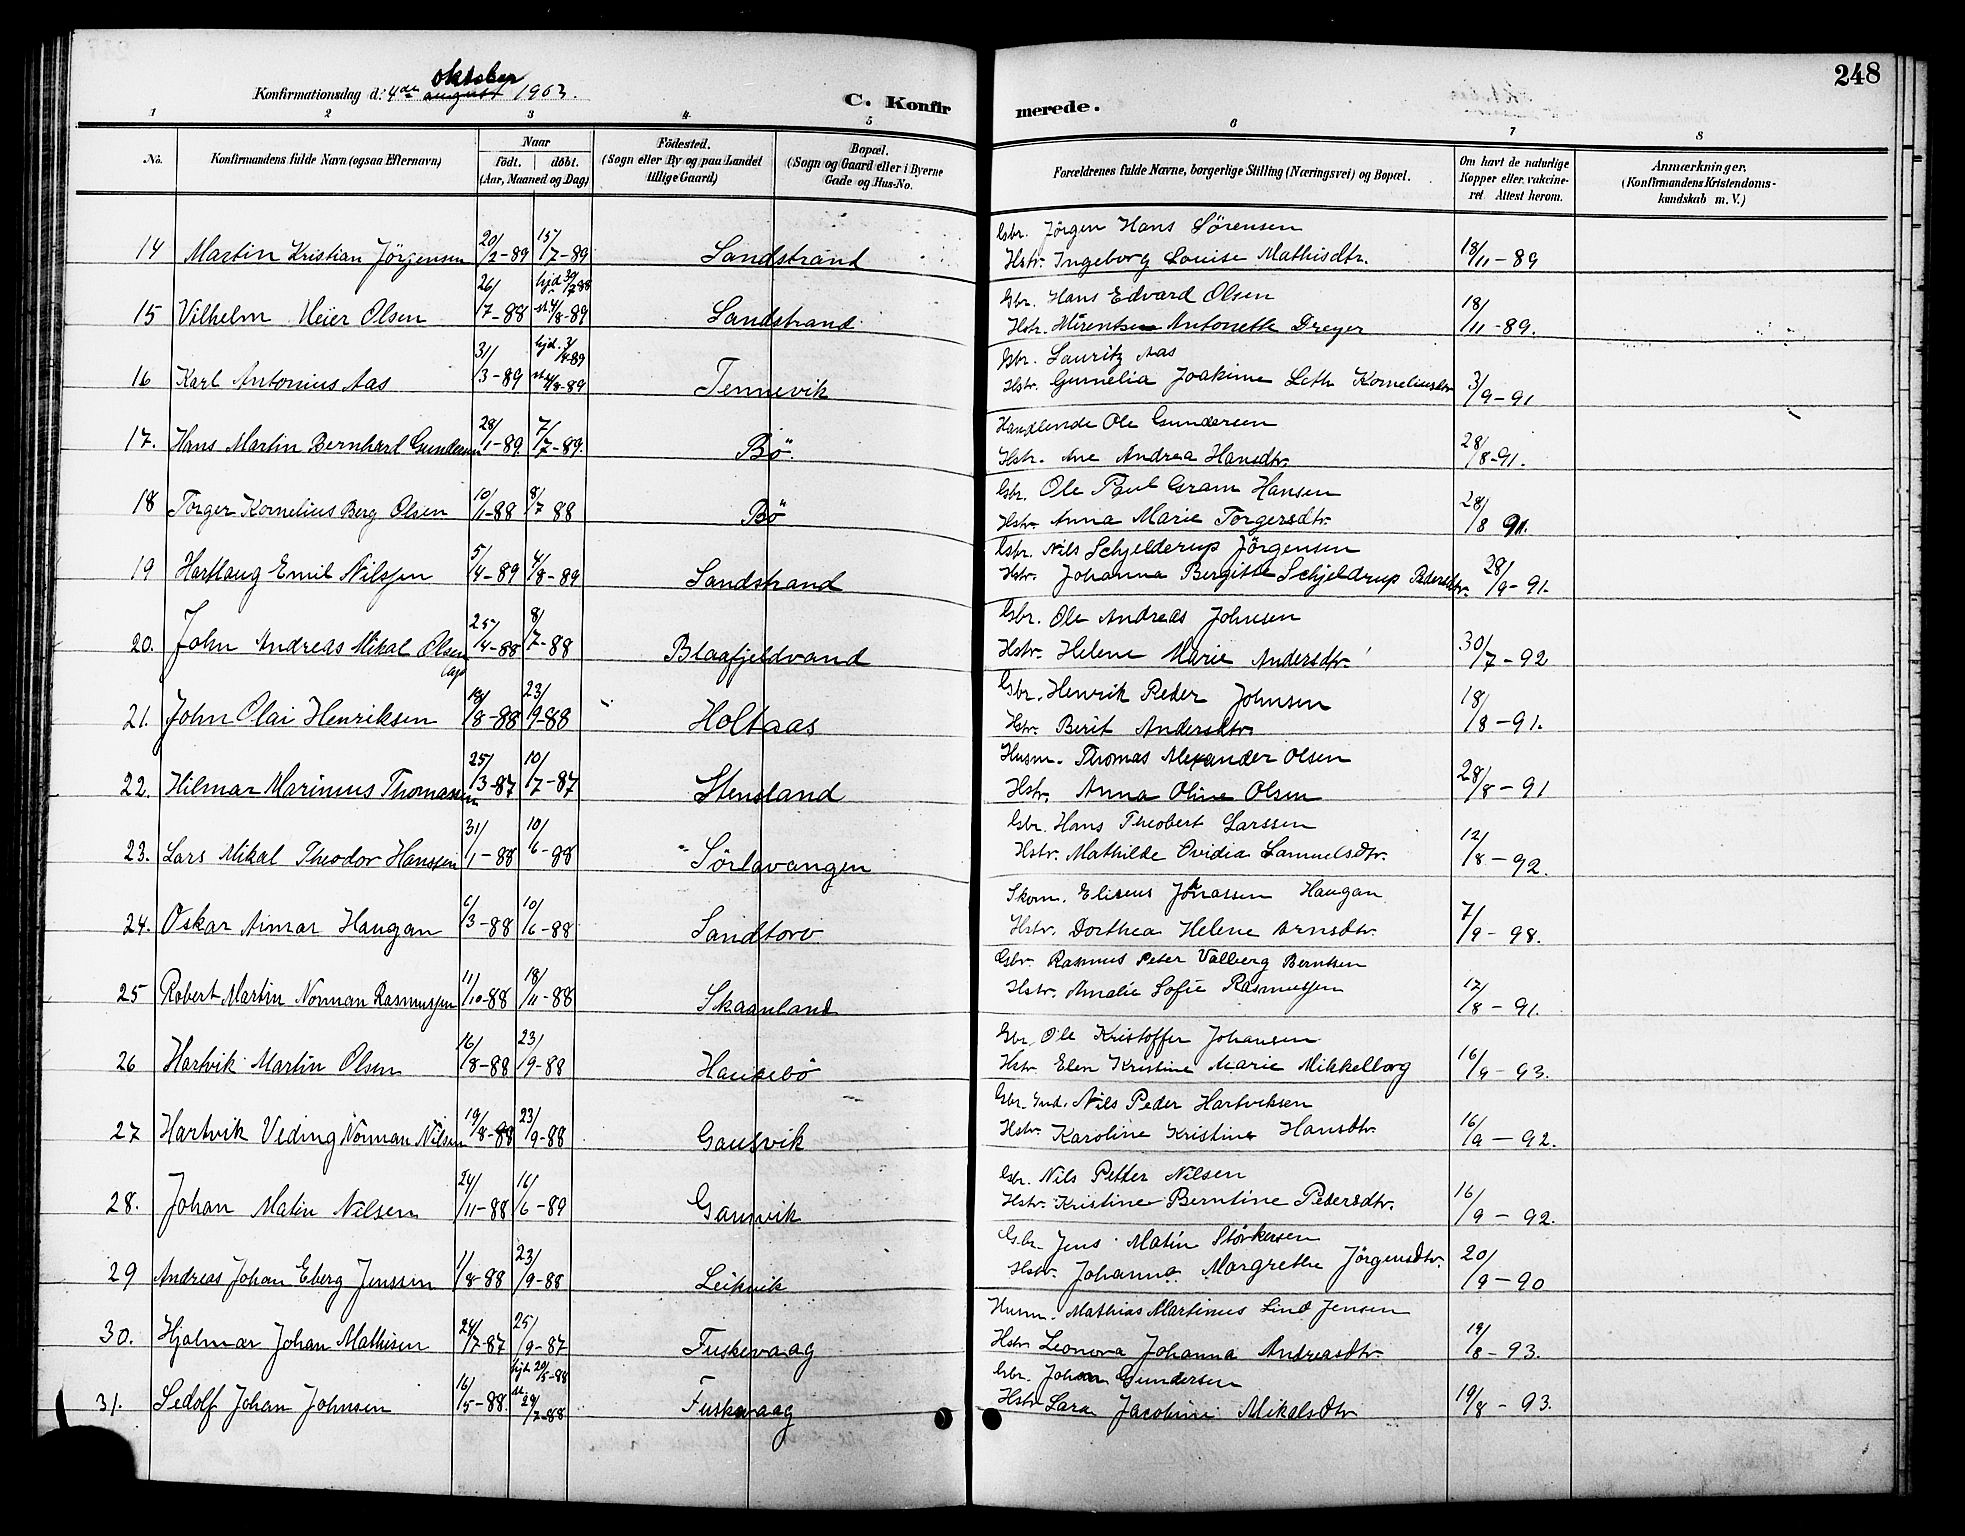 248
oktober
Konfirmationsdag d: 4de august 1903.
C. Konfirmerede.
1 2 3 4 5 6 7 8
No. Konfirmandens fulde Navn (ogsaa Efternavn) Naar födt. döbt. (Aar, Maaned og Dag) Födested. (Sogn eller By og paa Landet tillige Gaard) Bopæl. (Sogn og Gaard eller i Byerne Gade og Hus-No. Forældrenes fulde Navne, borgerlige Stilling (Næringsvei) og Bopæl. Om havt de naturlige Kopper eller vakcineret Attest herom. Anmærkninger. (Konfirmandens Kristendomskundskab m. V.)
14 Martin Kristian Jörgensen 20/2-89 15/7-89 Sandstrand Gbr. Jörgen Hans Sörensen
Hstr. Ingeborg Louise Mathisdtr. 18/11-89
15 Vilhelm Meier Olsen 26/7-88 hjd 30/7 88 st. 4/8-89 Sandstrand Gbr. Hans Edvard Olsen
Hstr. Antonette Dreyer 18/11-89.
16 Karl Antonius Aas 31/3-89 hjd. 3/4-89 st. 4/8-89 Tennevik Gbr. Lauritz Aas
Hstr. Gunnelia Joakime Leth Korneliusdtr 3/9-91
17. Hans Martin Bernhard Gundersen 28/1-89. 7/7-89. Bö. Handlende Ole Gundersen
Hstr. Ane Andrea Hansdtr. 28/8-91.
18 Torger Kornelius Berg Olsen 10/1-88 8/7 88 Bö Gbr. Ole Paul Gram Hansen
Hstr. Anna Marie Torgersdtr. 28/8 91.
19 Hartlaug Emil Nilsen 5/4-89 4/8-89 Sandstrand Gbr. Nils Schjelderup Jörgensen
Hstr. Johanna Bergitte Schjeldrup Pedersdtr. 28/9-91.
20. John Andreas Mikal Olsen 25/4-88 8/7-88 Blaafjeldvand Gbr. Ole Andreas Johnsen
Hstr. Helene Marie Andersdtr. 30/7-92
21. John Olai Henriksen 18/8-88 23/9-88 Holtaas Gbr. Henrik Peder Johnsen
Hstr. Berit Andersdtr. 18/8-91.
22. Hilmar Marinius Thomassen 25/3-87 10/7-87 Stensland Husm. Thomas Alexander Olsen
Hstr. Anna Oline Olsen 28/8-91
23. Lars Mikal Theodor Hanssen 31/1-88 10/6-88 Sörlavangen Gbr. Hans Theobert Larssen
Hstr. Mathilde Ovidia Samuelsdtr. 12/8-92.
24. Oskar Aimar Haugan 6/3-88 10/6-88 Sandtorv Skom. Eliseus Jonassen Haugan
Hstr. Dorthea Helene Arnsdtr. 7/9-98.
25 Robert Martin Norman Rasmussen 11/10-88 18/11-88 Skaanland Gbr. Rasmus Peter Valberg Berntsen
Hstr. Amalie Sofie Rasmussen 12/8-91.
26 Hartvik Martin Olsen 16/8-88 23/9-88 Haukebö Gbr. Ole Kristoffer Johansen
Hstr. Elen Kristine Marie Mikkelborg 16/9-93.
27 Hartvik Veding Norman Nilsen 19/8-88 23/9-88 Gausvik Gbr. Ind. Nils Peder Hartviksen
Hstr. Karoline Kristine Hansdtr. 16/9-92.
28. Johan Matin Nilsen 24/11-88 16/6-89 Gausvik Gbr. Nils Petter Nilsen
Hstr. Kristine Berntine Pedersdtr. 16/9-92.
29 Andreas Johan Eberg Jenssen 1/8-88 23/9-88 Leikvik Gbr. Jens Matin Störkersen
Hstr. Johanna Margrethe Jörgensdtr. 20/9-90
30. Hjalmar Johan Mathisen 24/7-87 25/9-87 Fuskevaag Husm. Mathias Martinus Lind Jensen
Hstr. Leonora Johanna Andreasdtr. 19/8-93.
31. Sedolf Johan Johnsen 16/5-88. hjd 20/5-88 st 29/7-88 Fuskevaag Gbr. Johan Gundersen
Hstr Lara Jacobine Mikalsdtr 19/8-93.